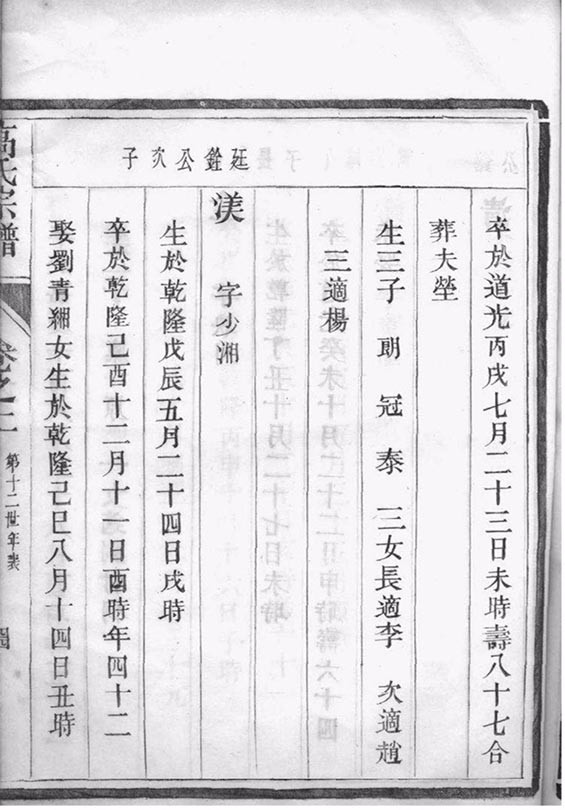 卒於道光丙戌七月二十三日未時壽八十七合
葬夫塋
生三子 朗 冠 泰 三女長適李 次適趙
三適楊
廷銓公次子
渼 字少湘
生於乾隆戊辰五月二十四日戌時
卒於乾隆己酉十二月十一日酉時年四十二
娶劉青緗女生於乾隆己巳八月十四日丑時
高氏宗譜
卷之二
第十二世年表